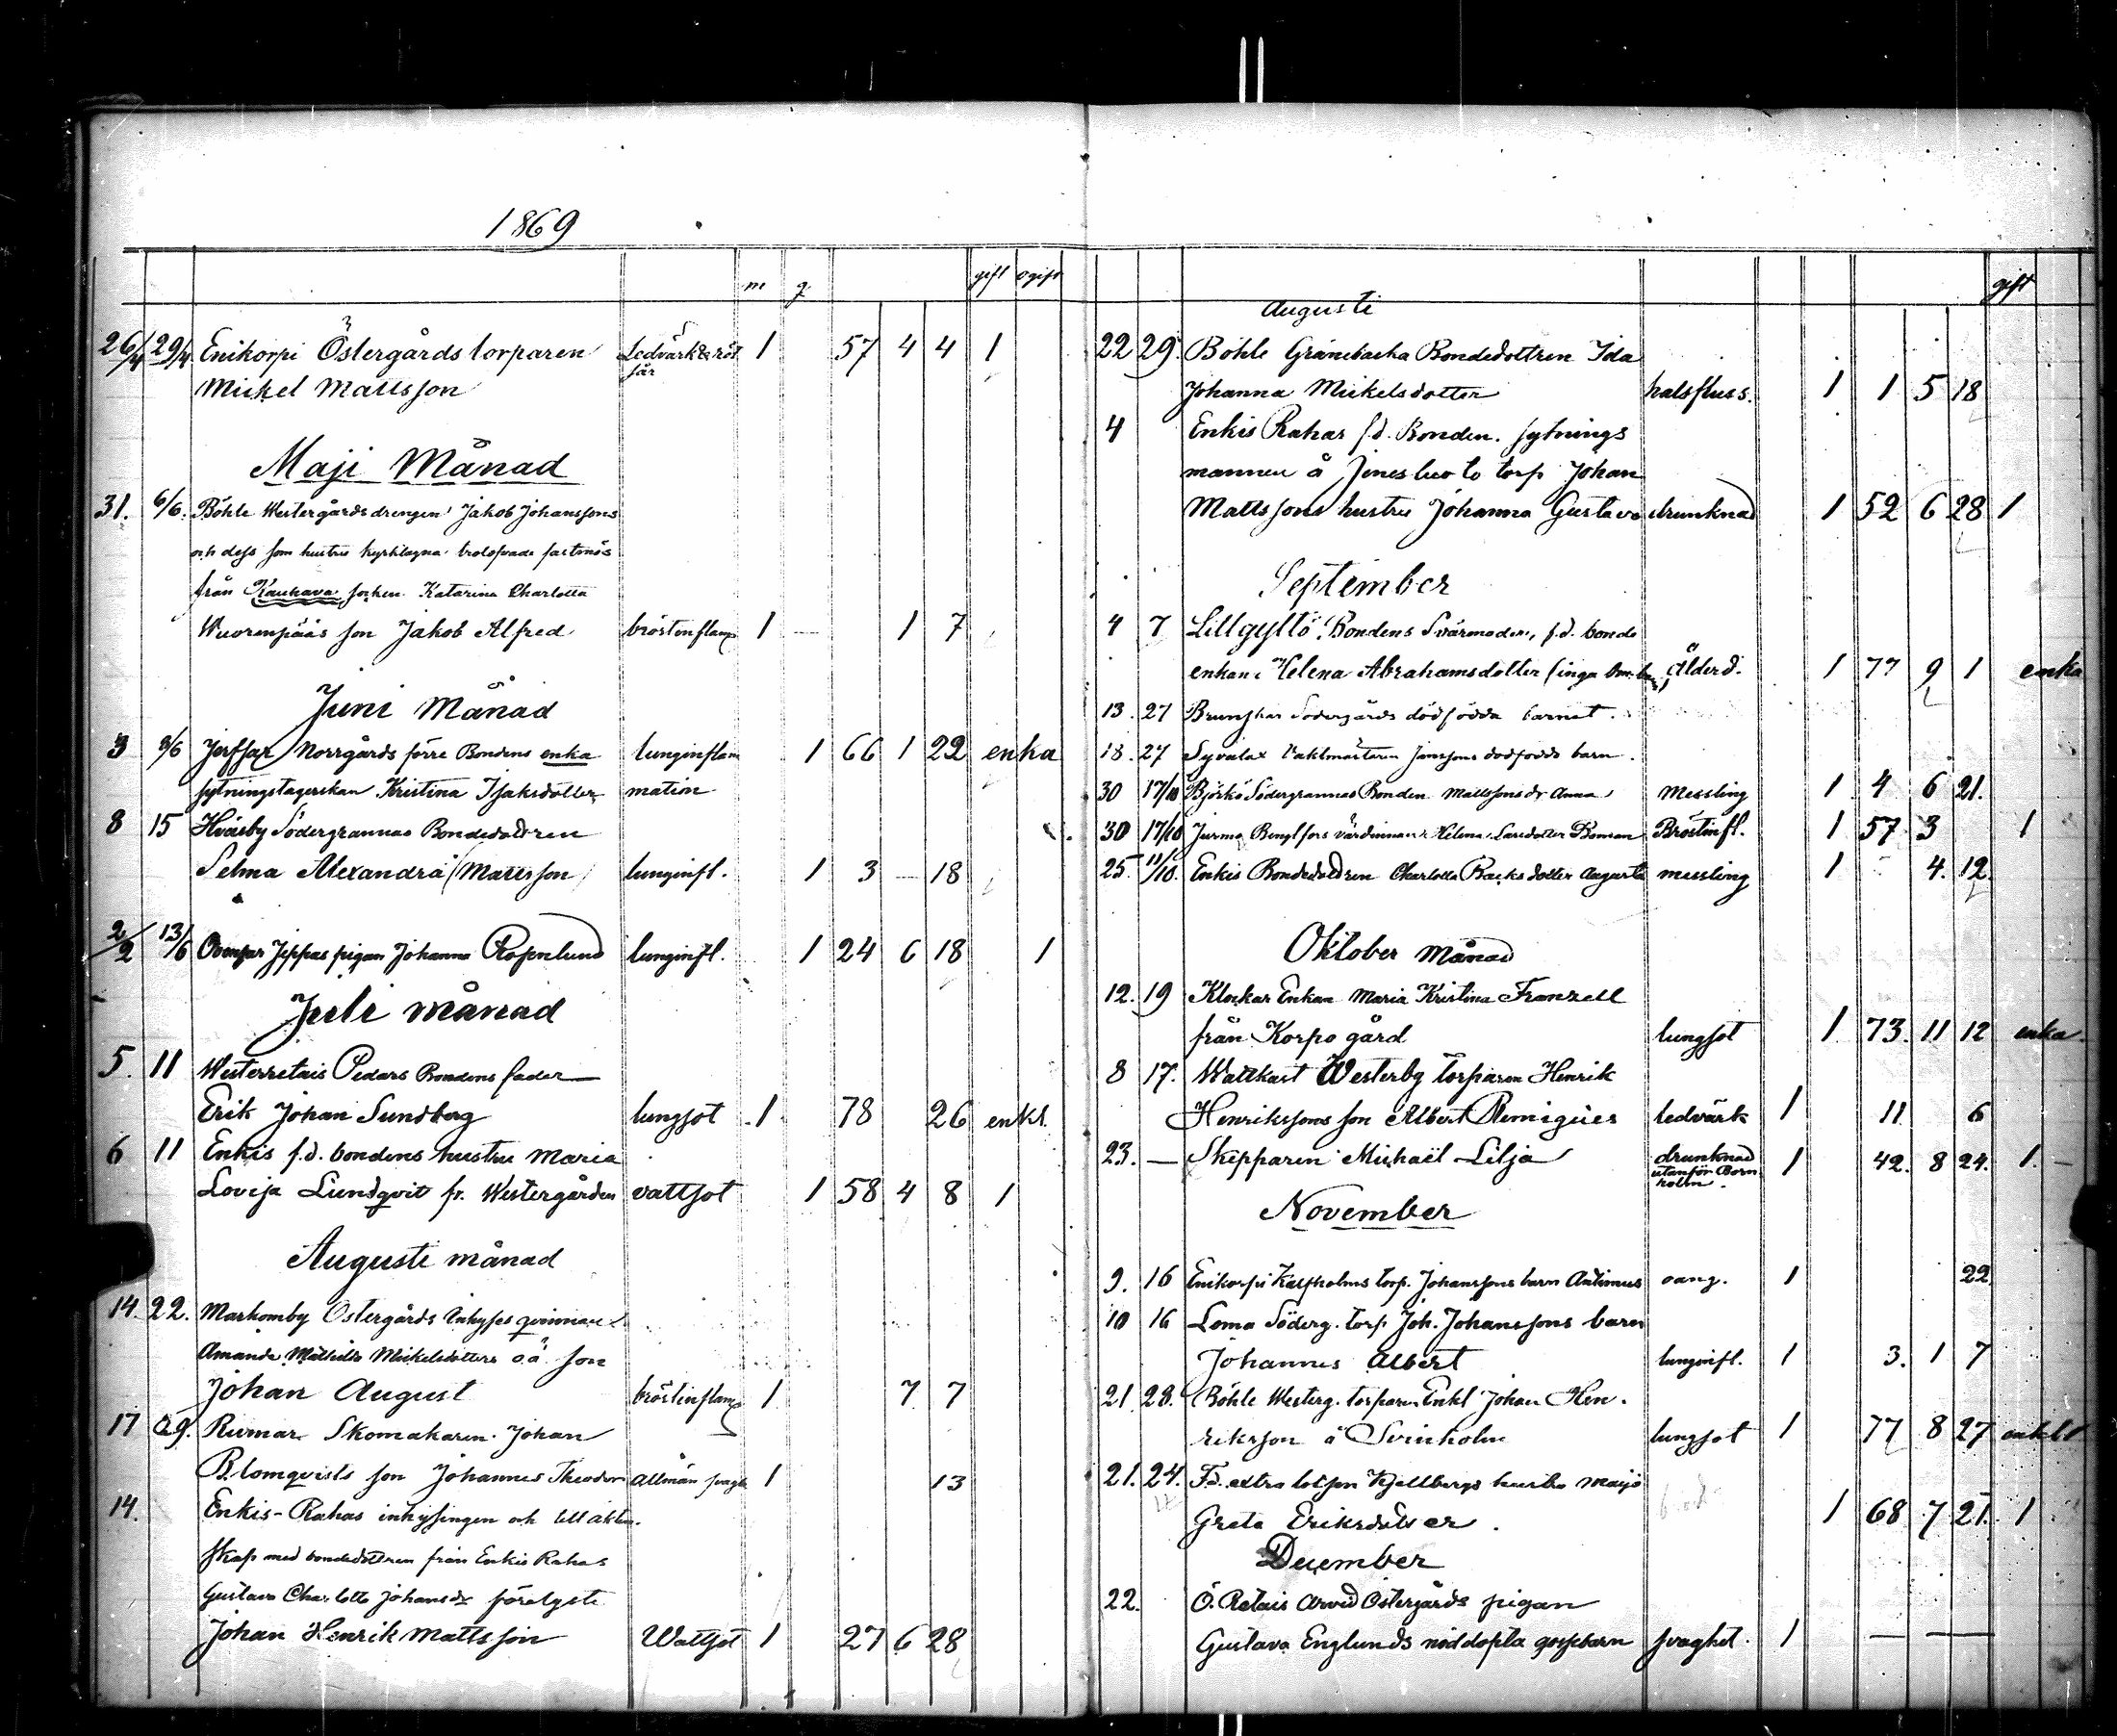 1869
m q gift ogift
26/4 29/4 Enikorpi Östergårds torparen Ledvärk & röt 1 57 4 4 1
Mickel Mattsson sår
Maji Månad
31. 6/6. Böhle Westergårds drengen Jakob Johanssons
och dess som hustru kyrktagna trolofvade fästmös
från Kauhava socken Katarina Charlotta
Wuorenpääs son Jakob Alfred bröstinflam 1 1 7
Juni Månad
3 9/6 Norrgårds förre Bondens enka lunginflam 1 66 1 22 enka
sytningstagerskan Kristina Isaksdotter mation
8 15 Hväsby Södergrannas Bondedottren
Selma Alexandra Mattsson lunginfl. 1 3 — 18
2/2 13/6 Jeppas pigan Johanna Rosenlund lunginfl. 1 24 6 18 1
Juli månad
5. 11 Westerretais Pedars Bondens fader
Erik Johan Sundberg lungsot 1 78 26 enkl.
6 11 Enkis f.d. bondens hustru Maria
Lovisa Lundqvit fr. Westergården vattsot 1 58 4 8 1
Augusti månad
14. 22. Markomby Östergårds Inhyses qvinnan
Amanda Mathilda Mickelsdotters oä son
Johan August bröstinflam 1 7 7
17 29. Rumar Skomakaren Johan
Blomqvists son Johannes Theodor Allmän svagh 1 13
14. Enkis-Rahas inhysingen och till äkten-
skap med bondedottren från Enkis Rahas
Gustava Charlotta Johansdr förelyste
Johan Henrik Mattsson Wattsot 1 27 6 28
gift
Augusti
22 29 Böhle Gränsbacka Bondedottren Ida
Johanna Mickelsdotter halsfluss. 1 1 5 18
4 Enkis Rahas f.d. Bonden. sytnings
mannen å torp Johan
Mattssons hustru Johanna Gustava drunknad 1 52 6 28 1
September
4 7 Lillgyltö Bondens Svärmoder, f.d. bonde
enkan Helena Abrahamsdotter (inga Ålderd. 1 77 9 1 enka
13. 27 Brunskär Södergårds dödfödda barnet.
18. 27 Syvalax Vaktmästaren Janssons dödfödda barn.
30 17/10 Björkö Södergrannas Bonden Mattssons dr Anna Messling 1 4 6 21.
30 17/10 Jurmo Bengtsors värdinnan Helena Larsdotter Boman Bröstinfl. 1 57 3 1
25. 11/10. Enkis Bondedottren Charlotta Backs dotter Augusta messling 1 4. 12.
Oktober Månad
12. 19 Klockar Enkan Maria Kristina Franzell
från Korpo gård lungsot 1 73. 11 12 enka.
8 17. Wattkast Westerby torparen Henrik
Henrikssons son Albert Remigius ledvärk 1 11 6
23. — Skepparen Michaël Lilja drunknad 1 42. 8 24. 1. —
utanför Born
holm.
November
9. 16 Enikorpi Kalfholms torp. Johanssons barn Antimus oang. 1 22
10 16 Loma Söderg. torp Joh. Johanssons barn
Johannes Albert lunginfl. 1 3. 1 7
21 28. Böhle Westerg. torparen Enkl Johan Hen-
riksson å Svinholm lungsot 1 77 8 27 enkl
21. 24. F.d. extra lotsen Kjellbergs hustru Maija
Greta Eriksdotter. 1 68 7 21. 1
December
22. Ö. Retais Arvid Östergårds pigan
Gustava Englunds nöddöpta gossebarn svaghet. 1 — —